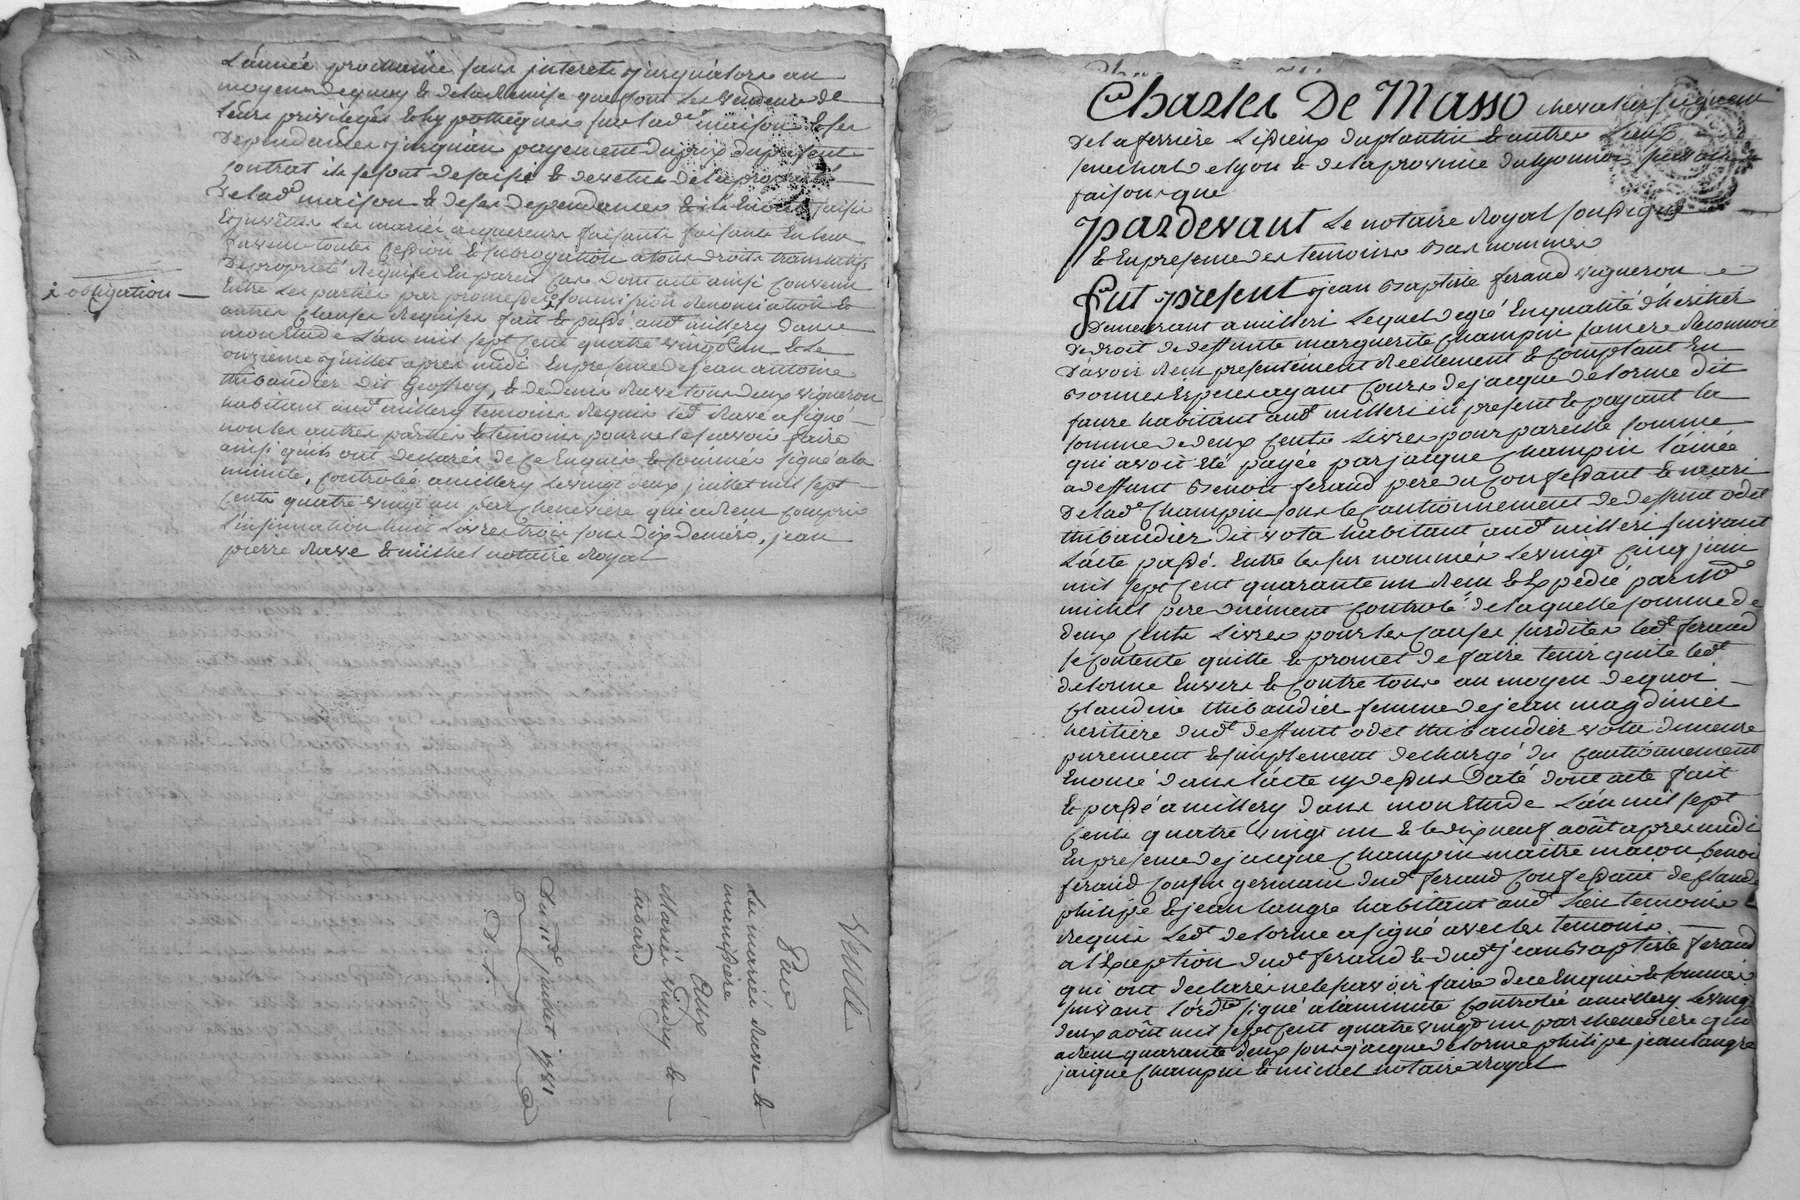 L'année prochaine sans interets jusqu'alors au
moyen de quoy & de la remise que font les vendeurs de
leurs privileges & hypotheques sur lad.e maison & ses
dependances jusqu'au payement du prix du present
contrat ils se sont desaisis & devetus de la propriété
de lad.e maison & de ses dependances & ils en ont saisi
& investis les mariés acquereurs faisants faisants en leur
faveur toutes cession & subrogation atous droits translatifs
de propriété requises en pareil cas dont acte ainsi convenu
i obligation
entre les parties par promesses soumission renonciation &
autres clauses requises fait & passé aud.t millery dans
mon etude l'an mil sept cent quatre vingt un & le
onzieme juillet apres midi en presence de jean antoine
thibaudier dit Geoffray, & de denis rave tous deux vigneron
habitant aud.t millery temoins requis led.t Ravé a signé
non les autres parties & temoins pour ne le scavoir faire
ainsi quils ont declarés de ce enquis & sommés signé a la
minute, controlée a millery le vingt deux juillet mil sept
cents quatre vingt un par cheneviere qui a recu compris
l'insinuation huit livres trois sous dix deniers, jean
pierre Ravé & michel notaire royal
Vente
Par
Les mariés ravé &
manissiere
Aux
Mariés vindry &
tabard
Du 11.e juillet 1781
Charles De Masso chevalier seigneur
de la ferriere Lissieux du plantin & autres lieux
senechal de lyon & de la province du lyonnois scavoir
faisons que
Pardevant Le notaire Royal soussigné
& en presence des temoins bas nommés
Fut present jean Baptiste feraud vigneron
demeurant a milleri lequel de gré en qualité d'heritier
de droit de deffunte marguerite champin sa mere reconnoit
d'avoir recu presentement reellement & comptant en
bonnes especes ayant cours de jacque delorme dit
faure habitant aud.t milleri ici present & payant la
somme de deux cents livres pour pareille somme
qui avoit été payée par jacque champin l'ainée
a deffunt Benoit feraud pere du confessant & mari
de lad.e champin sous le cautionnement de deffunt odet
thibaudier dit vota habitant aud.t milleri suivant
l'acte passé entre les sus nommés le vingt cinq juin
mil sept cent quarante un recu & expedié par m.e
michel pere duement controlé de laquelle somme de
deux cents livres pour les causes susdites led.t feraud
se contente quitte & promet de faire tenir quite led.t
delorme envers & contre tous au moyen de quoi
claudine thibaudier femme de jean magdinier
heritiere dud.t deffunt odet thibaudier vota demeure
purement & simplement dechargé du cautionnement
enoncé dans l'acte cy dessus daté dont acte fait
& passé a millery dans mon etude l'an mil sept
cents quatre vingt un & le dix neuf août apres midi
en presence de jacque champin maitre macon benoi
feraud cousin germain dud.t feraud confessant de claud
philippe & jean langre habitant aud.t lieu temoins
requis led.t delorme a signé avec les temoins
a l'exception dud.t feraud & dud.t jean Baptiste feraud
qui ont declarés ne le scavoir faire de ce enquis & sommés
suivant l'ord.ce signé a la minute controlée a millery le vingt
deux août mil sept cent quatre vingt un par chenevière qui
a recu quarante deux sous jacque delorme philipe jean langre
jacque champin & michel notaire royal